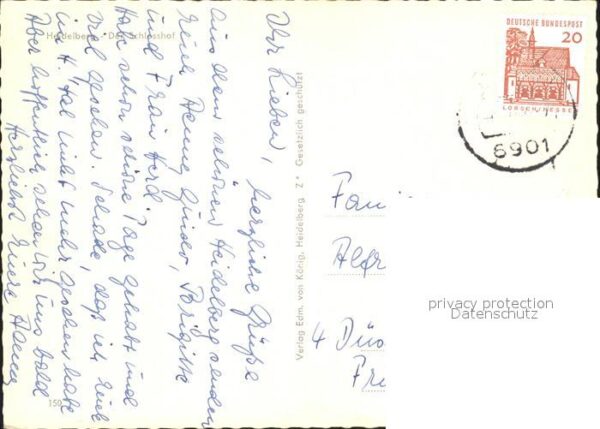 Heidelberg - Der Schlosshof
Ihr Lieben, herzliche Grüße
aus dem schönen Heidelberg senden
Euch Hanna, Günter, Brigitte
und Frau Herd.
Habe schon schöne Tage gehabt und
viel gesehen. Schade, daß ich Euch
in H. mal nicht mehr gesehen habe
Aber hoffentlich sehen wir uns bald
Herzlichst Eure Hanna
150
Verlag Edm. von König, Heidelberg. Z* Gesetzlich geschützt
DEUTSCHE BUNDESPOST
20
LORSCH/HESSEN
6901
Fami
Alfr
4 Düs
Fre
privacy protection
Datenschutz